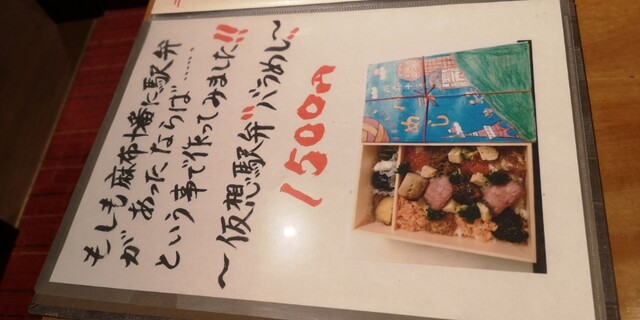 もしも麻布十番に駅弁
があったならば……
という事で作ってみました!!
〜仮想駅弁"バラめし〜
1500円
めし